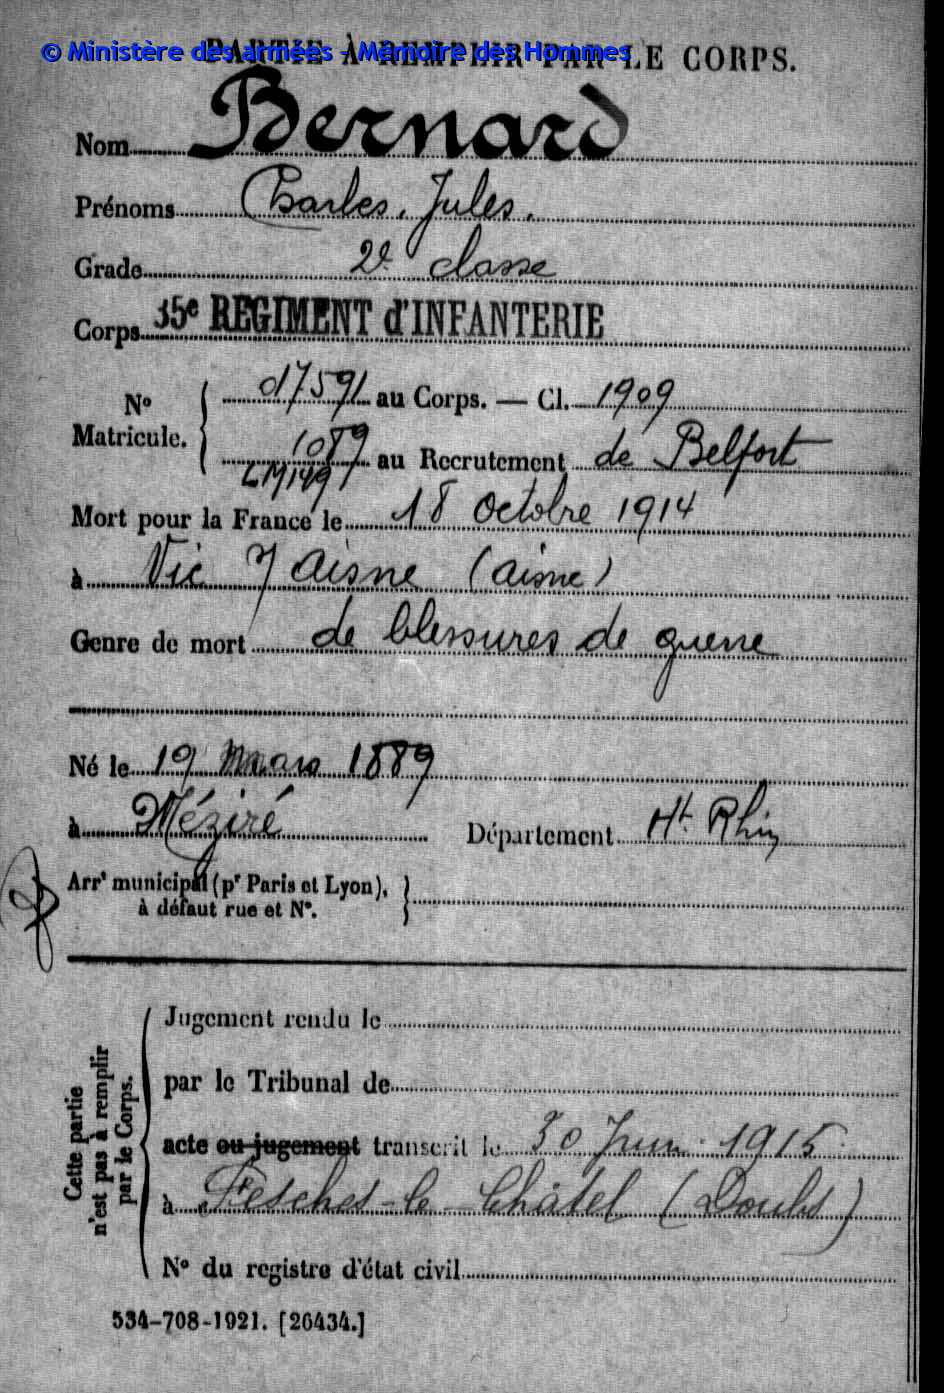 © Ministère des armées - Mémoire des Hommes
PARTIE À REMPLIR PAR LE CORPS.
Nom Bernard
Prénoms Charles, Jules.
Grade 2e classe
Corps 35e REGIMENT d'INFANTERIE
No Matricule. 017591 au Corps. — Cl. 1909
1089 au Recrutement de Belfort
LM149
Mort pour la France le 18 octobre 1914
à Vic s/ Aisne (aisne)
Genre de mort de blessures de guerre
Né le 19 Mars 1889
à Méziré Département Ht Rhin
Arrt municipal (pr Paris et Lyon),
à défaut rue et No.
Cette partie
n'est pas à remplir
par le Corps.
Jugement rendu le
par le Tribunal de
acte ou jugement transcrit le 30 Juin 1915
à Fesches-le-Châtel (Doubs)
No du registre d'état civil
534-708-1921. [26434.]